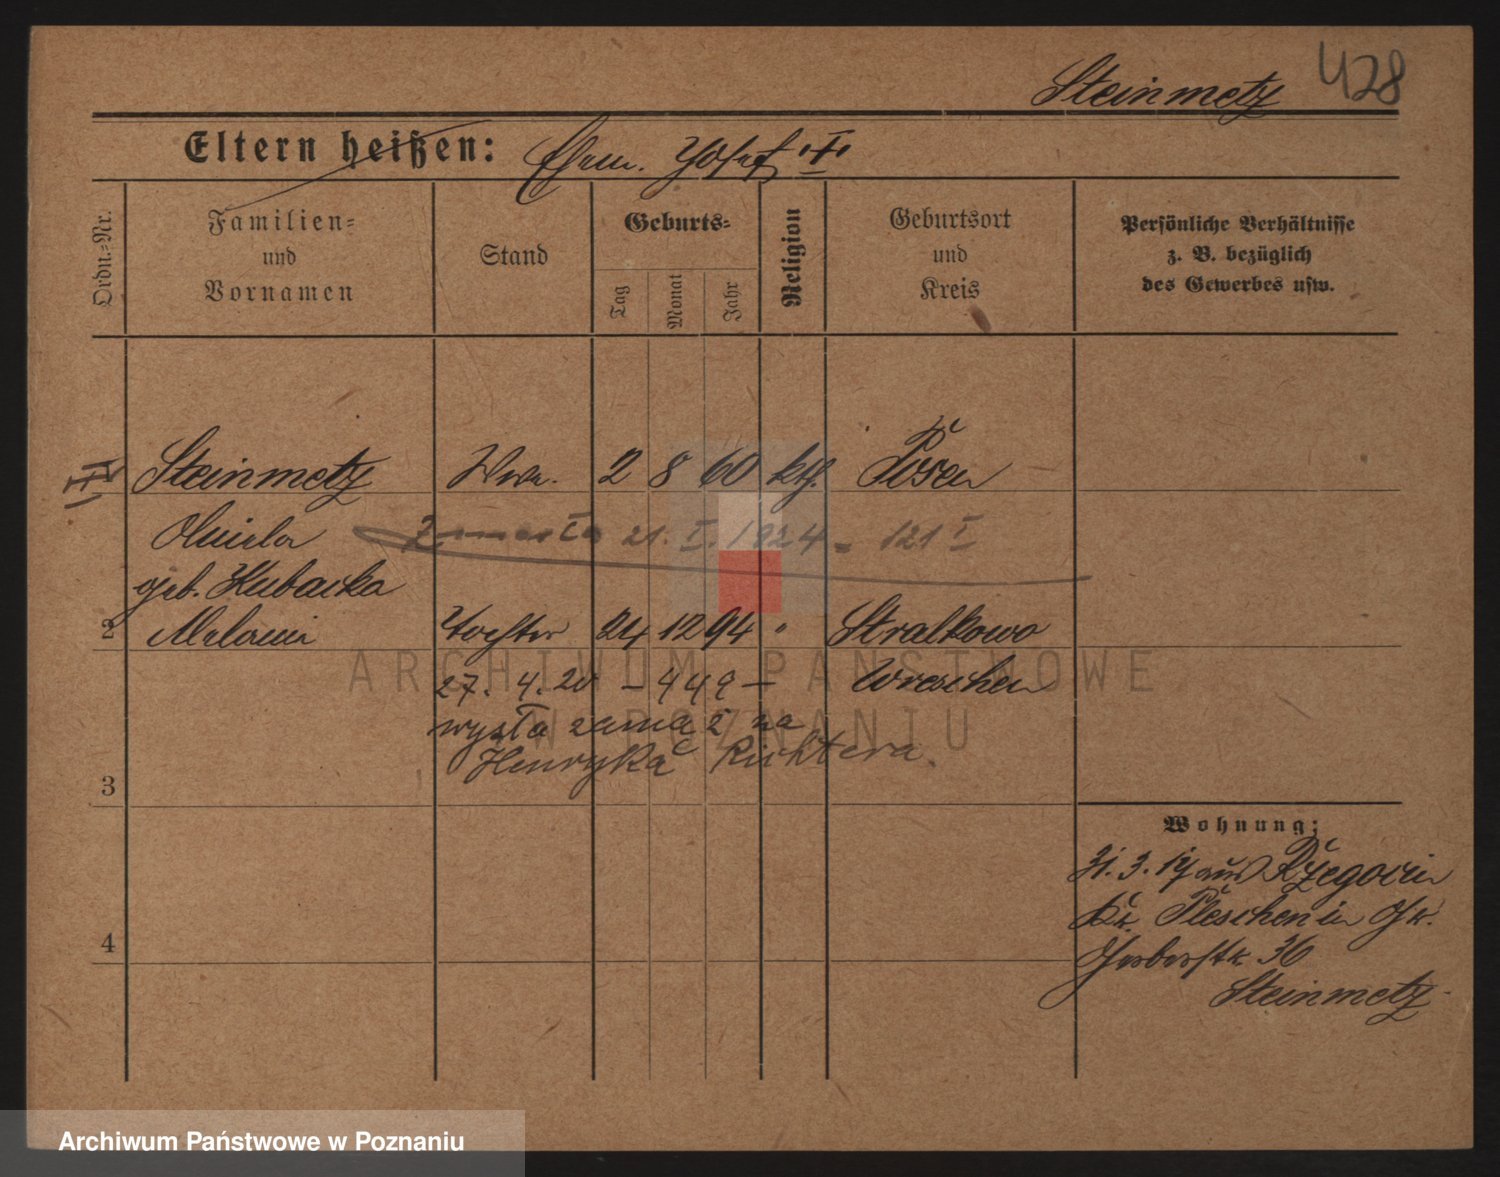 Steinmetz 428
Eltern heißen: Ehem. Josef "I"
Ordn.=Nr.
Familien=
und
Vornamen
Stand
Geburts=
Tag
Monat
Jahr
Religion
Geburtsort
und
Kreis
Persönliche Verhältnisse
z. B. bezüglich
des Gewerbes usw.
Steinmetz Wwe. 2 8 60 kth. Posen
zmarła 21. I. 1924 - 121 I
geb. Kubacka
2 Melanie Tochter 24 12 94 " Stralkowo
27. 4. 20 - 449 - Wreschen
wyszła zamąż za
Henryka Richtera.
3
Wohnung:
31. 3. 17 aus Rzegocin
Kr. Pleschen in
4
Gerberstr. 36
Steinmetz
ARCHIWUM PAŃSTWOWE
W POZNANIU
Archiwum Państwowe w Poznaniu